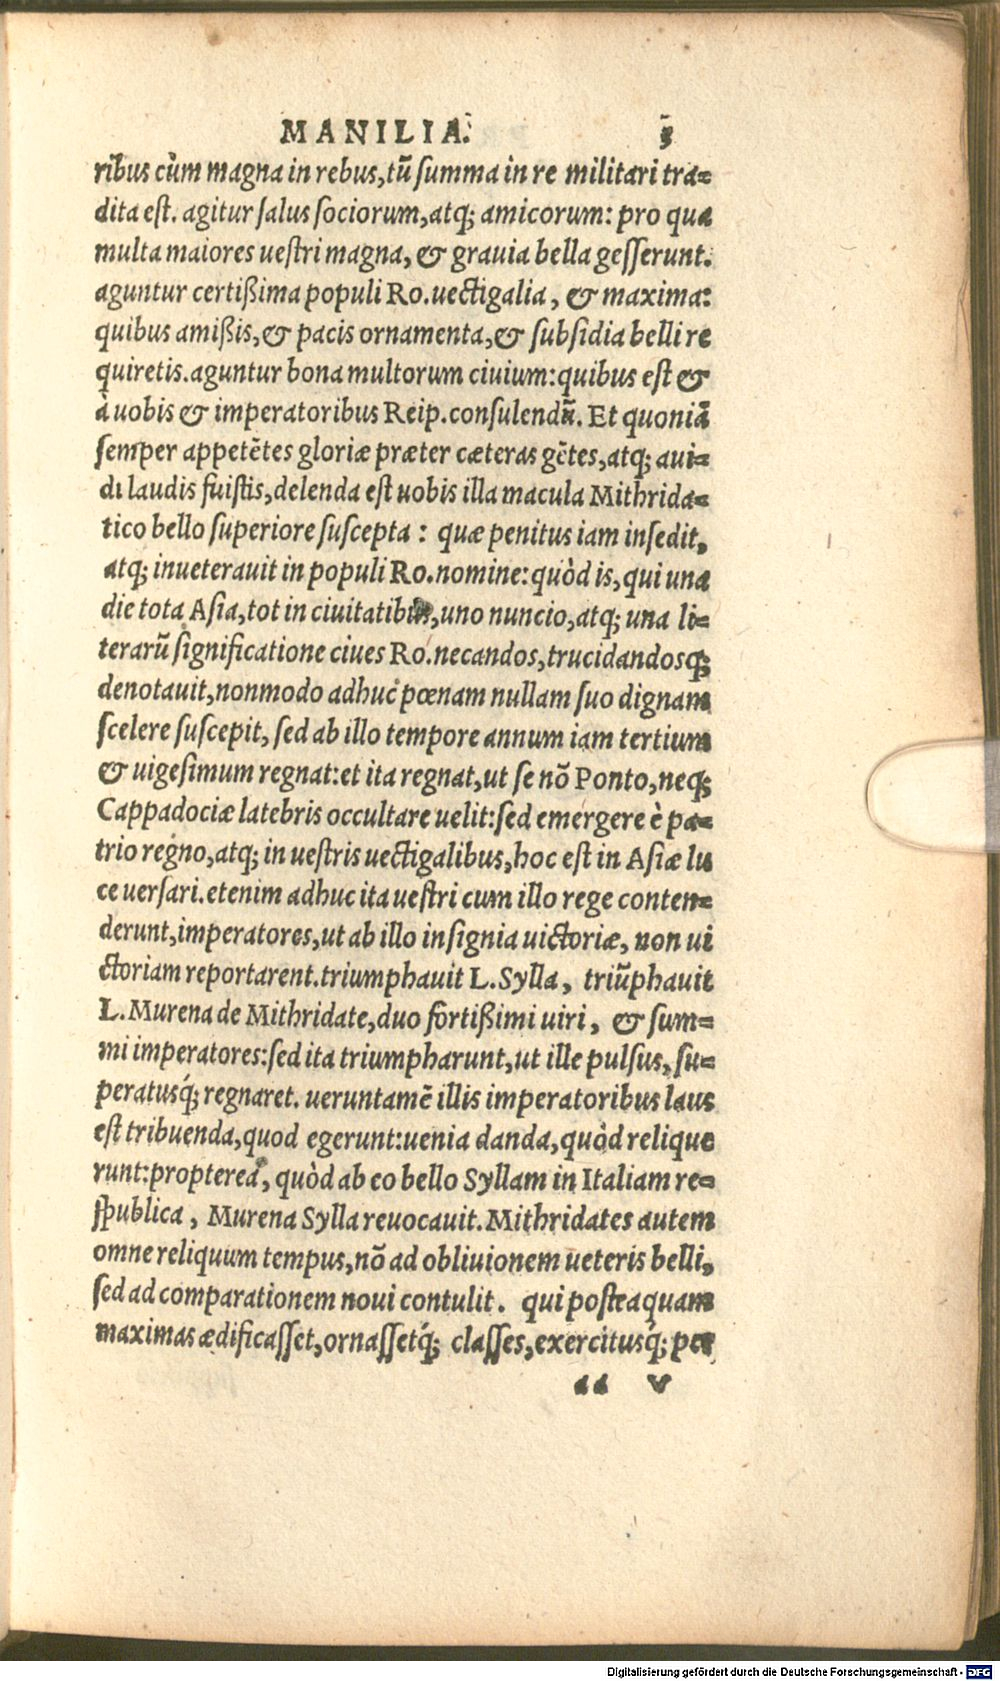 MANILIA. 5
ribus cùm magna in rebus, tũ summa in re militari tra=
dita est. agitur salus sociorum, atq; amicorum: pro qua
multa maiores uestri magna, & grauia bella gesserunt.
aguntur certißima populi Ro. uectigalia, & maxima:
quibus amißis, & pacis ornamenta, & subsidia belli re
quiretis. aguntur bona multorum ciuium: quibus est &
à uobis & imperatoribus Reip. consulendũ. Et quoniã
semper appetẽtes gloriæ præter cæteras gẽtes, atq; aui=
di laudis fuistis, delenda est uobis illa macula Mithrida=
tico bello superiore suscepta: quæ penitus iam insedit,
atq; inueterauit in populi Ro. nomine: quòd is, qui una
die tota Asia, tot in ciuitatibus, uno nuncio, atq; una li=
terarũ significatione ciues Ro. necandos, trucidandosq;
denotauit, nonmodo adhuc pœnam nullam suo dignam
scelere suscepit, sed ab illo tempore annum iam tertium
& uigesimum regnat: et ita regnat, ut se nõ Ponto, neq;
Cappadociæ latebris occultare uelit: sed emergere è pa=
trio regno, atq; in uestris uectigalibus, hoc est in Asiæ lu
ce uersari. etenim adhuc ita uestri cum illo rege conten=
derunt, imperatores, ut ab illo insignia uictoriæ, non ui
ctoriam reportarent. triumphauit L. Sylla, triũphauit
L. Murena de Mithridate, duo fortißimi uiri, & sum=
mi imperatores: sed ita triumpharunt, ut ille pulsus, su=
peratusq́; regnaret. ueruntamẽ illis imperatoribus laus
est tribuenda, quod egerunt: uenia danda, quòd relique
runt: propterea, quòd ab eo bello Syllam in Italiam re=
spublica, Murena Sylla reuocauit. Mithridates autem
omne reliquum tempus, nõ ad obliuionem ueteris belli,
sed ad comparationem noui contulit. qui posteaquam
maximas ædificasset, ornassetq́; classes, exercitusq́; per
aa v
Digitalisierung gefördert durch die Deutsche Forschungsgemeinschaft - DFG